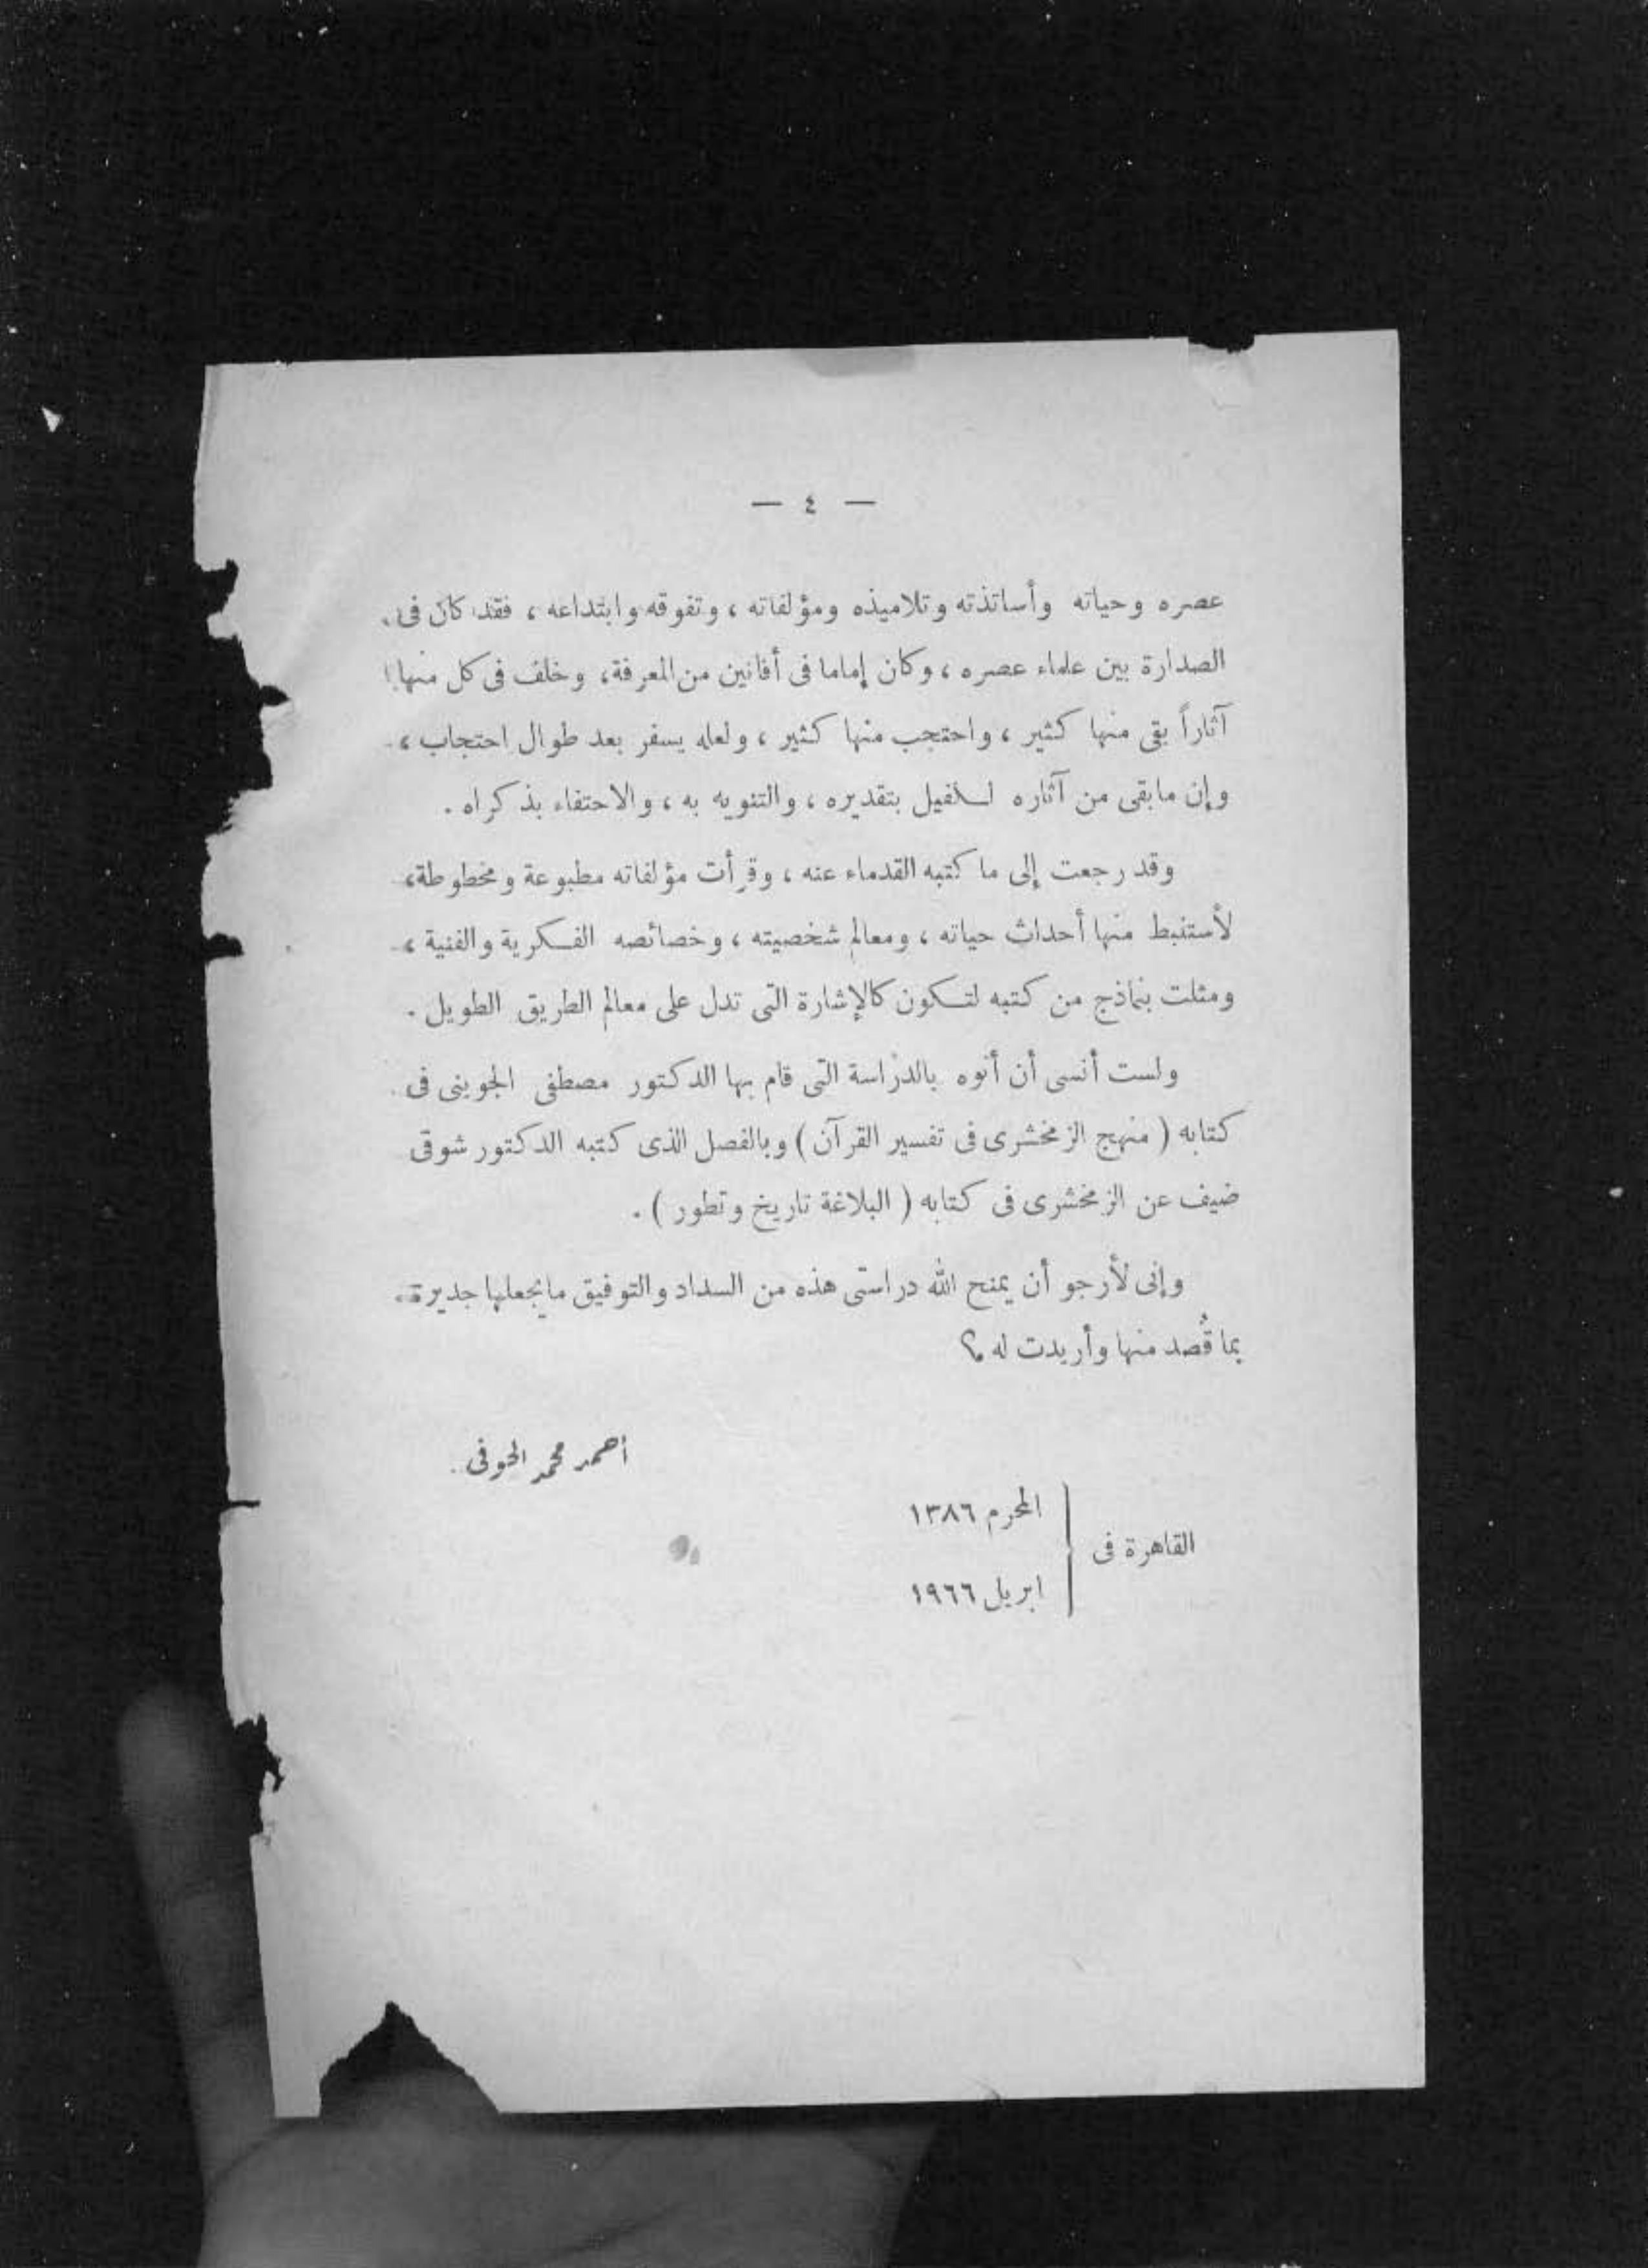 — ٤ —
عصره وحياته وأساتذته وتلاميذه ومؤلفاته ، وتفوقه وابتداعه ، فقد كان فى
الصدارة بين علماء عصره ، وكان إماما فى أفانين من المعرفة ، وخلف فى كل منها
آثاراً بقى منها كثير ، واحتجب منها كثير ، ولعله يسفر بعد طوال احتجاب ،
وإن مابقى من آثاره لكفيل بتقديره ، والتنويه به ، والاحتفاء بذكراه .
وقد رجعت إلى ما كتبه القدماء عنه ، وقرأت مؤلفاته مطبوعة ومخطوطة ،
لأستنبط منها أحداث حياته ، ومعالم شخصيته ، وخصائصه الفكرية والفنية ،
ومثلت بنماذج من كتبه لتكون كالإشارة التى تدل على معالم الطريق الطويل .
ولست أنسى أن أنوه بالدراسة التى قام بها الدكتور مصطفى الجوينى فى
كتابه ( منهج الزمخشرى فى تفسير القرآن ) وبالفصل الذى كتبه الدكتور شوقى
ضيف عن الزمخشرى فى كتابه ( البلاغة تاريخ وتطور ) .
وإنى لأرجو أن يمنح الله دراستى هذه من السداد والتوفيق مايجعلها جديرة
بما قُصد منها وأريدت له ؟
أحمد محمد الحوفى
المحرم ١٣٨٦
القاهرة فى
ابريل ١٩٦٦